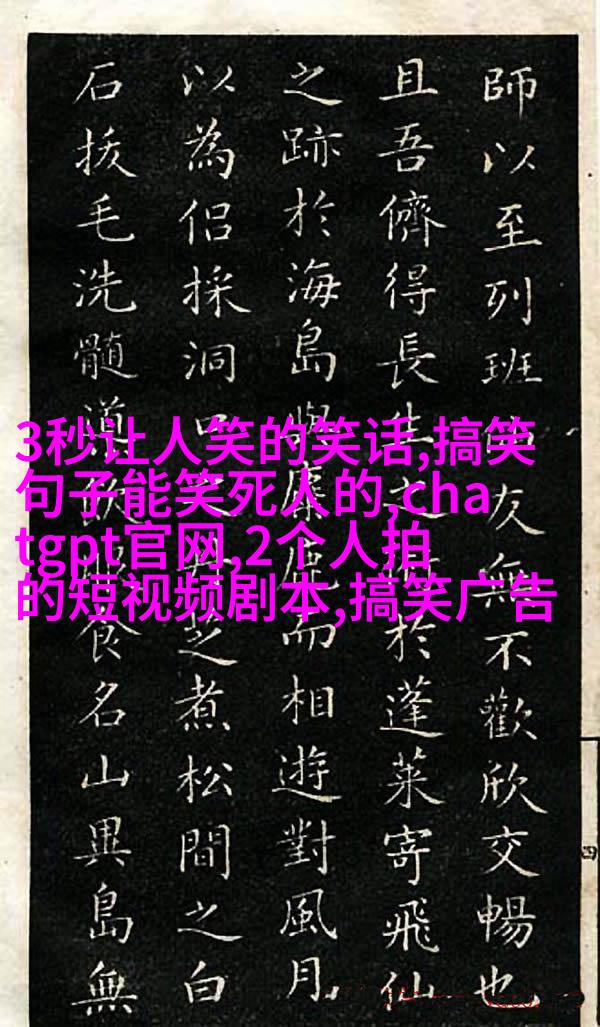 3秒让人笑的笑话,搞笑
句子能笑死人的,cha
tgpt官网,2个人拍
的短视频剧本,搞笑广告
師以至列班友無不歡欣交暢也
且吾儕得長生之於蓬萊寄飛仙
之跡於海島與麋鹿而相遊對風月
以為侶採洞口芝煮松間之白
石拔毛洗髓食名山異島無
四